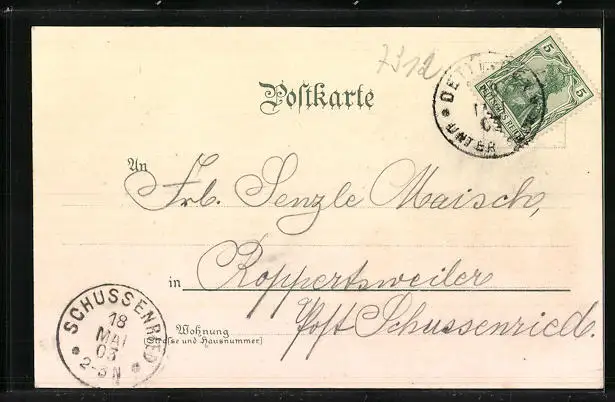 7312
Postkarte
5
5
DEUTSCHES REICH
DETTINGEN
UNTER
An
Frl. Senzle Maisch,
in Roppertsweiler
Wohnung
(Straße und Hausnummer)
Post Schussenried.
SCHUSSENRIED
18
MAI
03
2-3N